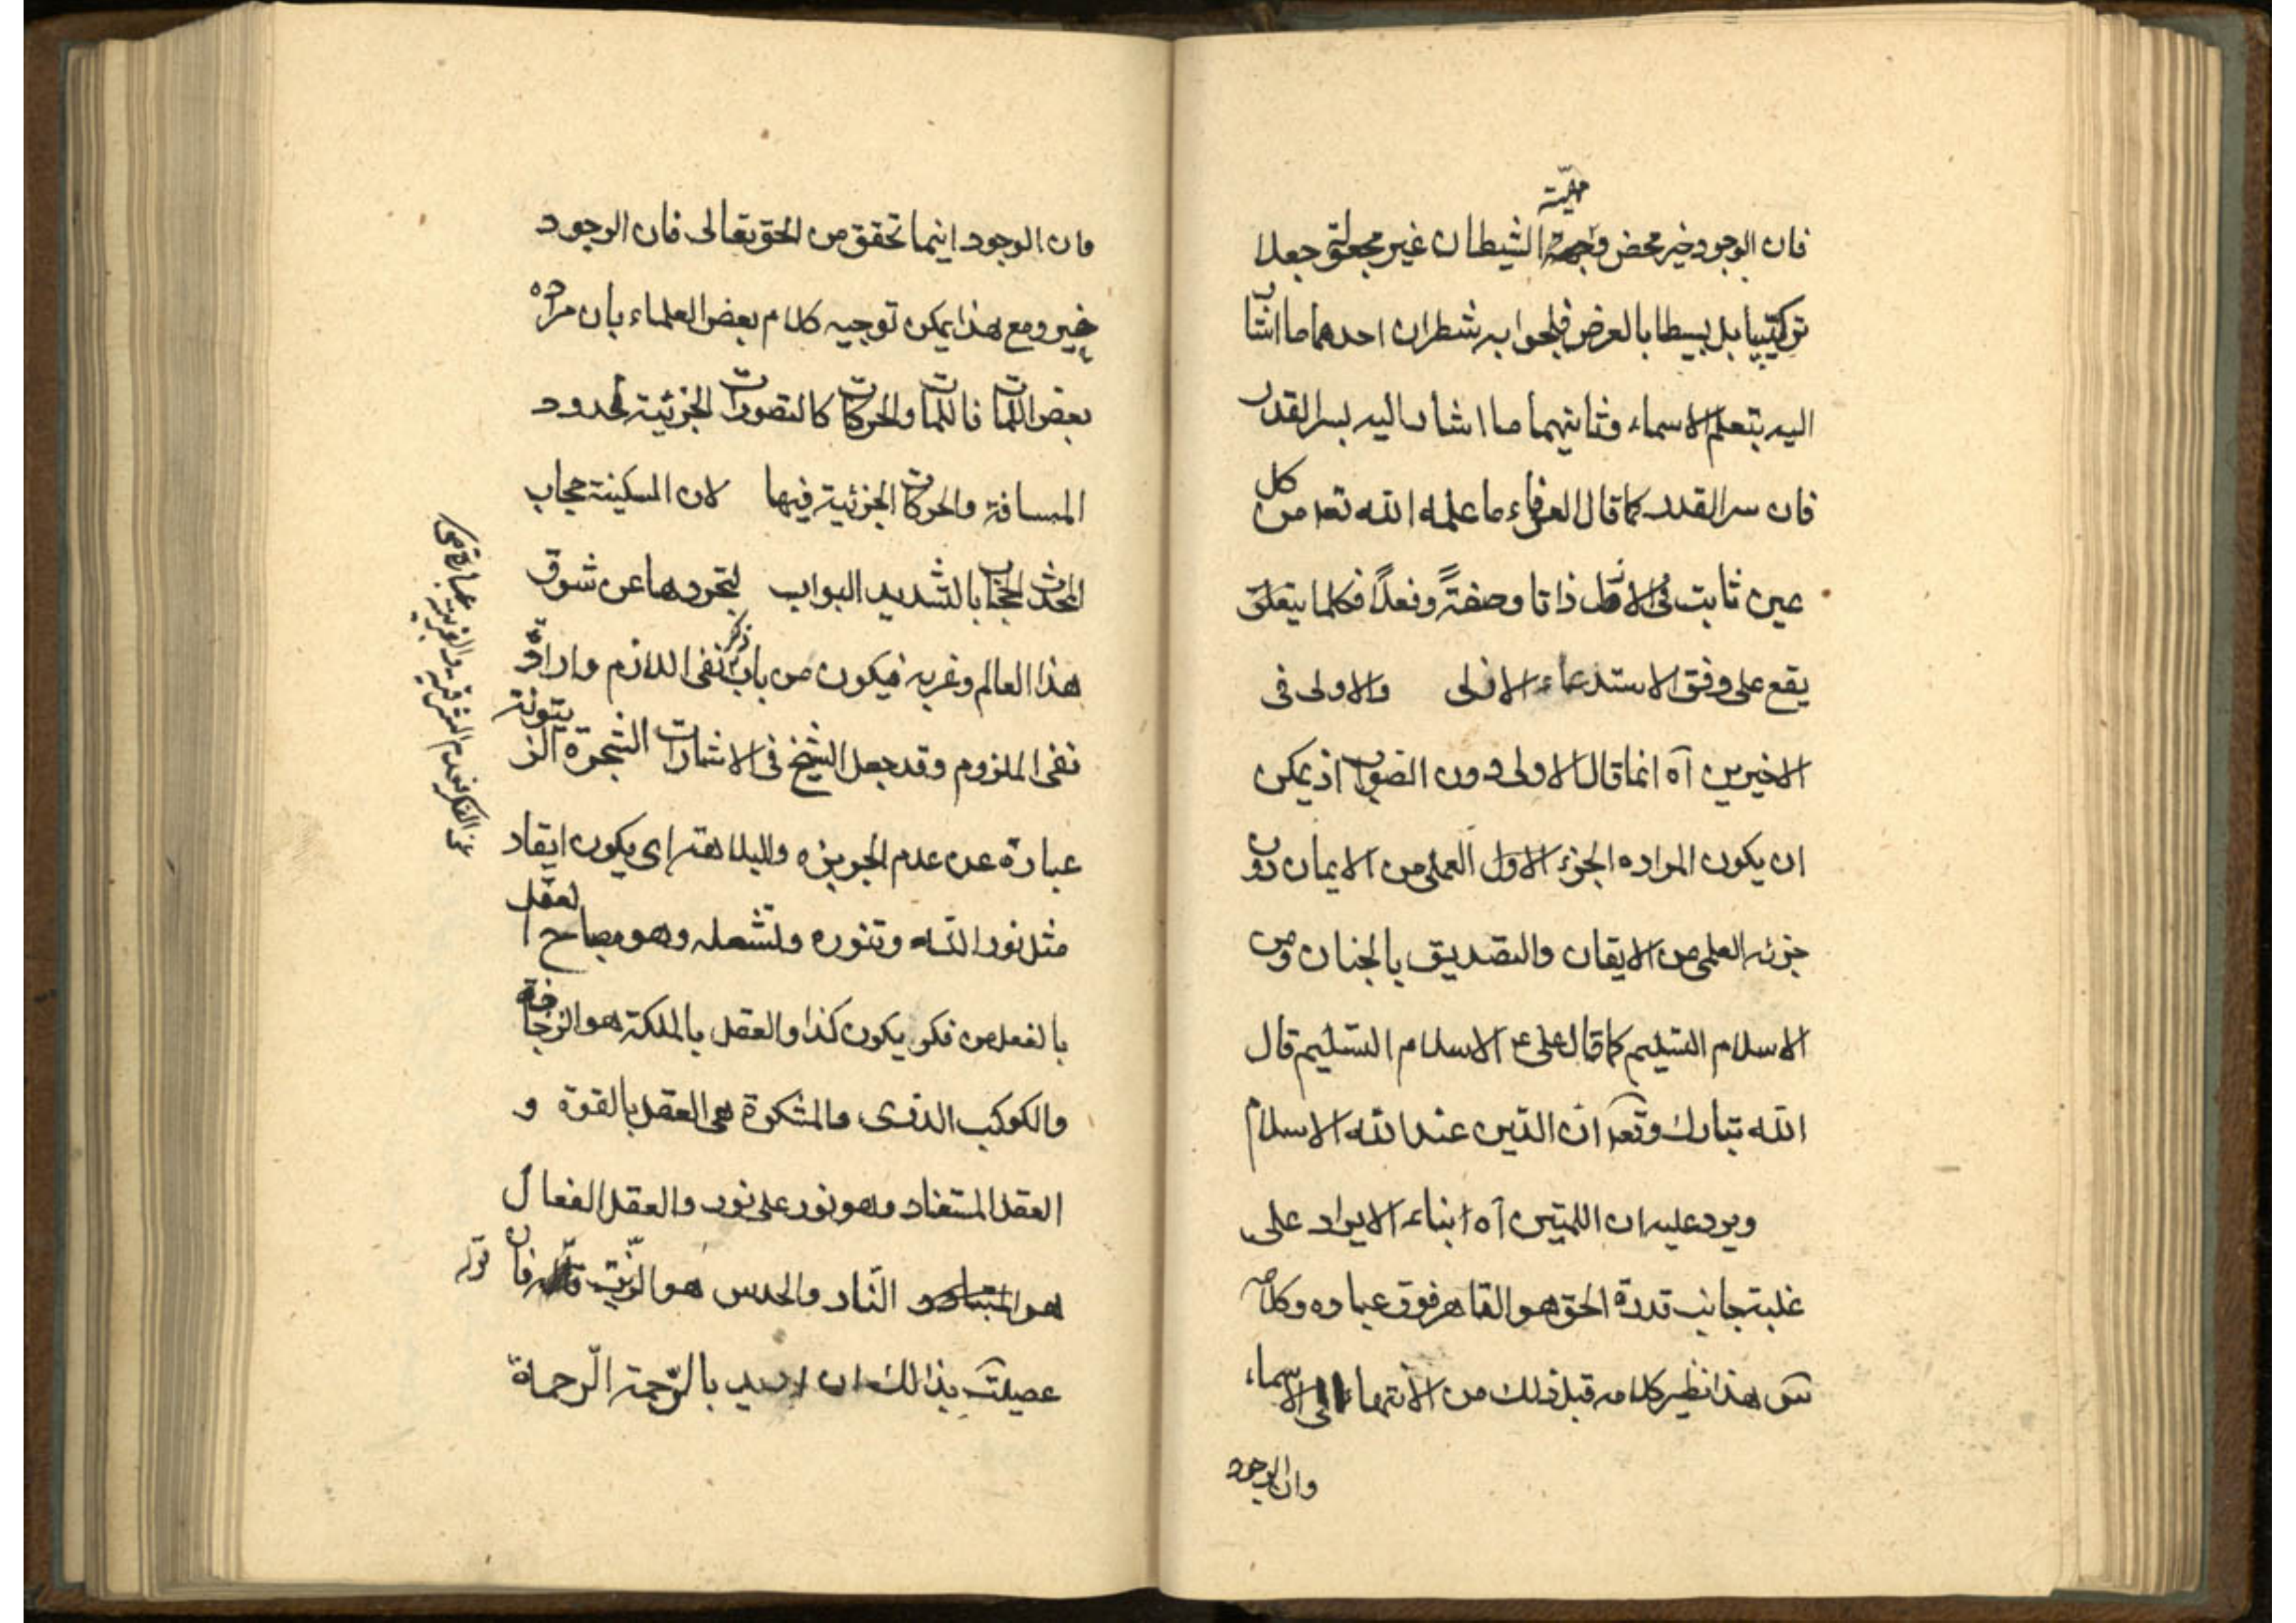 مهيّة
فان الوجود خير محض و الشيطان غير مجعولة جعلا
تركيبيا بل بسيطا بالعرض فللجواب شطران احدهما ما اشار
اليه بتعلم الاسماء وثانيهما ما اشار اليه بسر القدر
فان سر القدر كما قال العرفاء ما علمه الله تعا من كل
عين ثابت فى الازل ذاتا وصفةً وفعلاً فكلما يتعلق
يقع على وفق الاستدعاء الازلى والاولى فى
الاخيرين آه انما قال الاولى دون الصواب اذ يمكن
ان يكون المراد ه الجزء الاول العملى من الايمان دون
جزئه العلمى من الايقان والتصديق بالجنان ومن
الاسلام التسليم كما قال على ع الاسلام التسليم قال
الله تبارك وتعا ان الدّين عند الله الاسلام
ويرد عليه ان اللمتين آه ابناء الايراد على
غلبة جانب قدرة الحق هو القاهر فوق عباده وكلامه
هذا نظير كلامه قبل ذلك من الانتهاء الى الاسماء
وان الوجود
وان الوجود اينما تحقق من الحق تعالى فان الوجود
خير ومع هذا يمكن توجيه كلام بعض العلماء بان مراده
بعض اللمات فاللمات والحركات كالتصورات الجزئية لحدود
المسافة والحركات الجزئية فيها لان السكينة حجاب
المحدث الحجاب بالتشديد البواب لتجردها عن شوق
هذا العالم وغربه فيكون من باب ذكر نفى اللازم وارادة
نفى الملزوم وقد جعل الشيخ فى الاشارات الشجرة الزيتونة
عبارة عن عدم الجربزه والبلاهة اى يكون ايقاد
مثل نور الله وتنوره وتشعله وهو مصباح العقل
بالفعل من فكر يكون كذا والعقل بالملكة هو الزجاجة
والكوكب الدرى والمشكوة هى العقل بالقوة و
العقل المستفاد وهو نور على نور والعقل الفعال
هو النّار والحدس هو الزّيت فان قوله
عصيت بذالك ان اريد بالرّحمة الرّحماة
عبارة عن
الفكر فعدم الشرقية والغربية